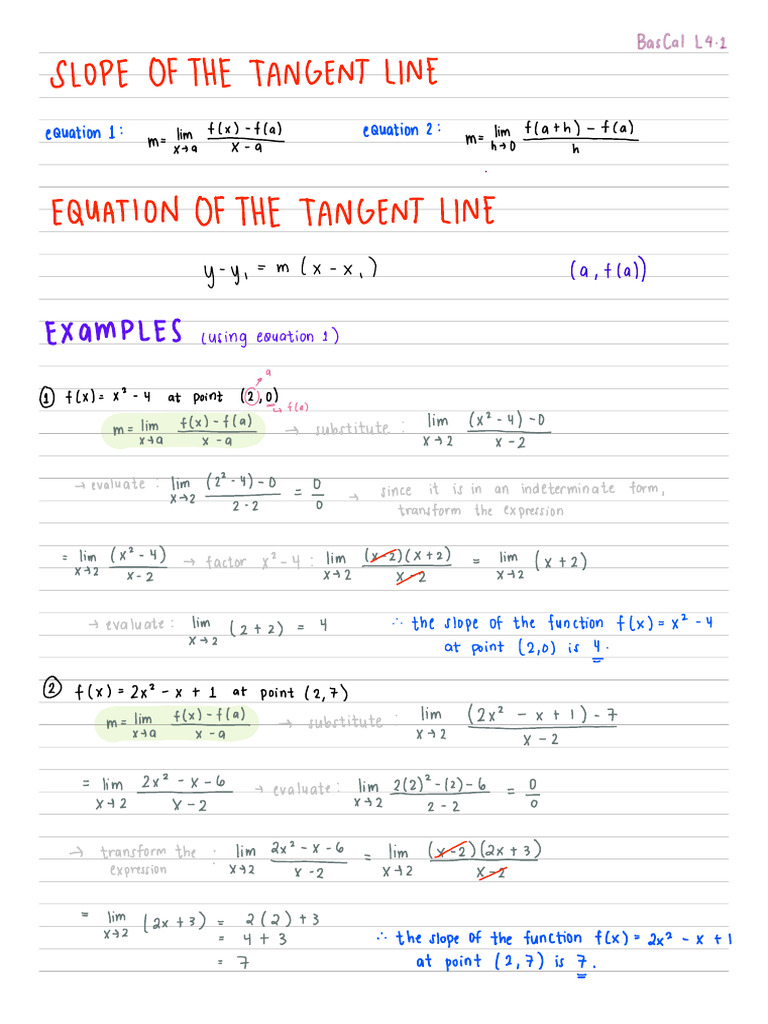 BasCal L4.1
SLOPE OF THE TANGENT LINE
equation 1: m = lim x→a (f(x) - f(a)) / (x - a) equation 2: m = lim h→0 (f(a+h) - f(a)) / h
EQUATION OF THE TANGENT LINE
y - y₁ = m (x - x₁) (a, f(a))
EXAMPLES (using equation 1)
a
① f(x) = x² - 4 at point (2, 0)
f(a)
m = lim x→a (f(x) - f(a)) / (x - a) → substitute : lim x→2 ((x² - 4) - 0) / (x - 2)
→ evaluate : lim x→2 ((2² - 4) - 0) / (2 - 2) = 0/0 → since it is in an indeterminate form,
transform the expression
= lim x→2 (x² - 4) / (x - 2) → factor x² - 4 : lim x→2 (x - 2)(x + 2) / (x - 2) = lim x→2 (x + 2)
→ evaluate : lim x→2 (2 + 2) = 4 ∴ the slope of the function f(x) = x² - 4
at point (2,0) is 4.
② f(x) = 2x² - x + 1 at point (2, 7)
m = lim x→a (f(x) - f(a)) / (x - a) → substitute : lim x→2 ((2x² - x + 1) - 7) / (x - 2)
= lim x→2 (2x² - x - 6) / (x - 2) → evaluate : lim x→2 (2(2)² - (2) - 6) / (2 - 2) = 0/0
→ transform the expression : lim x→2 (2x² - x - 6) / (x - 2) = lim x→2 (x - 2)(2x + 3) / (x - 2)
= lim x→2 (2x + 3) = 2(2) + 3
= 4 + 3 ∴ the slope of the function f(x) = 2x² - x + 1
= 7 at point (2,7) is 7.